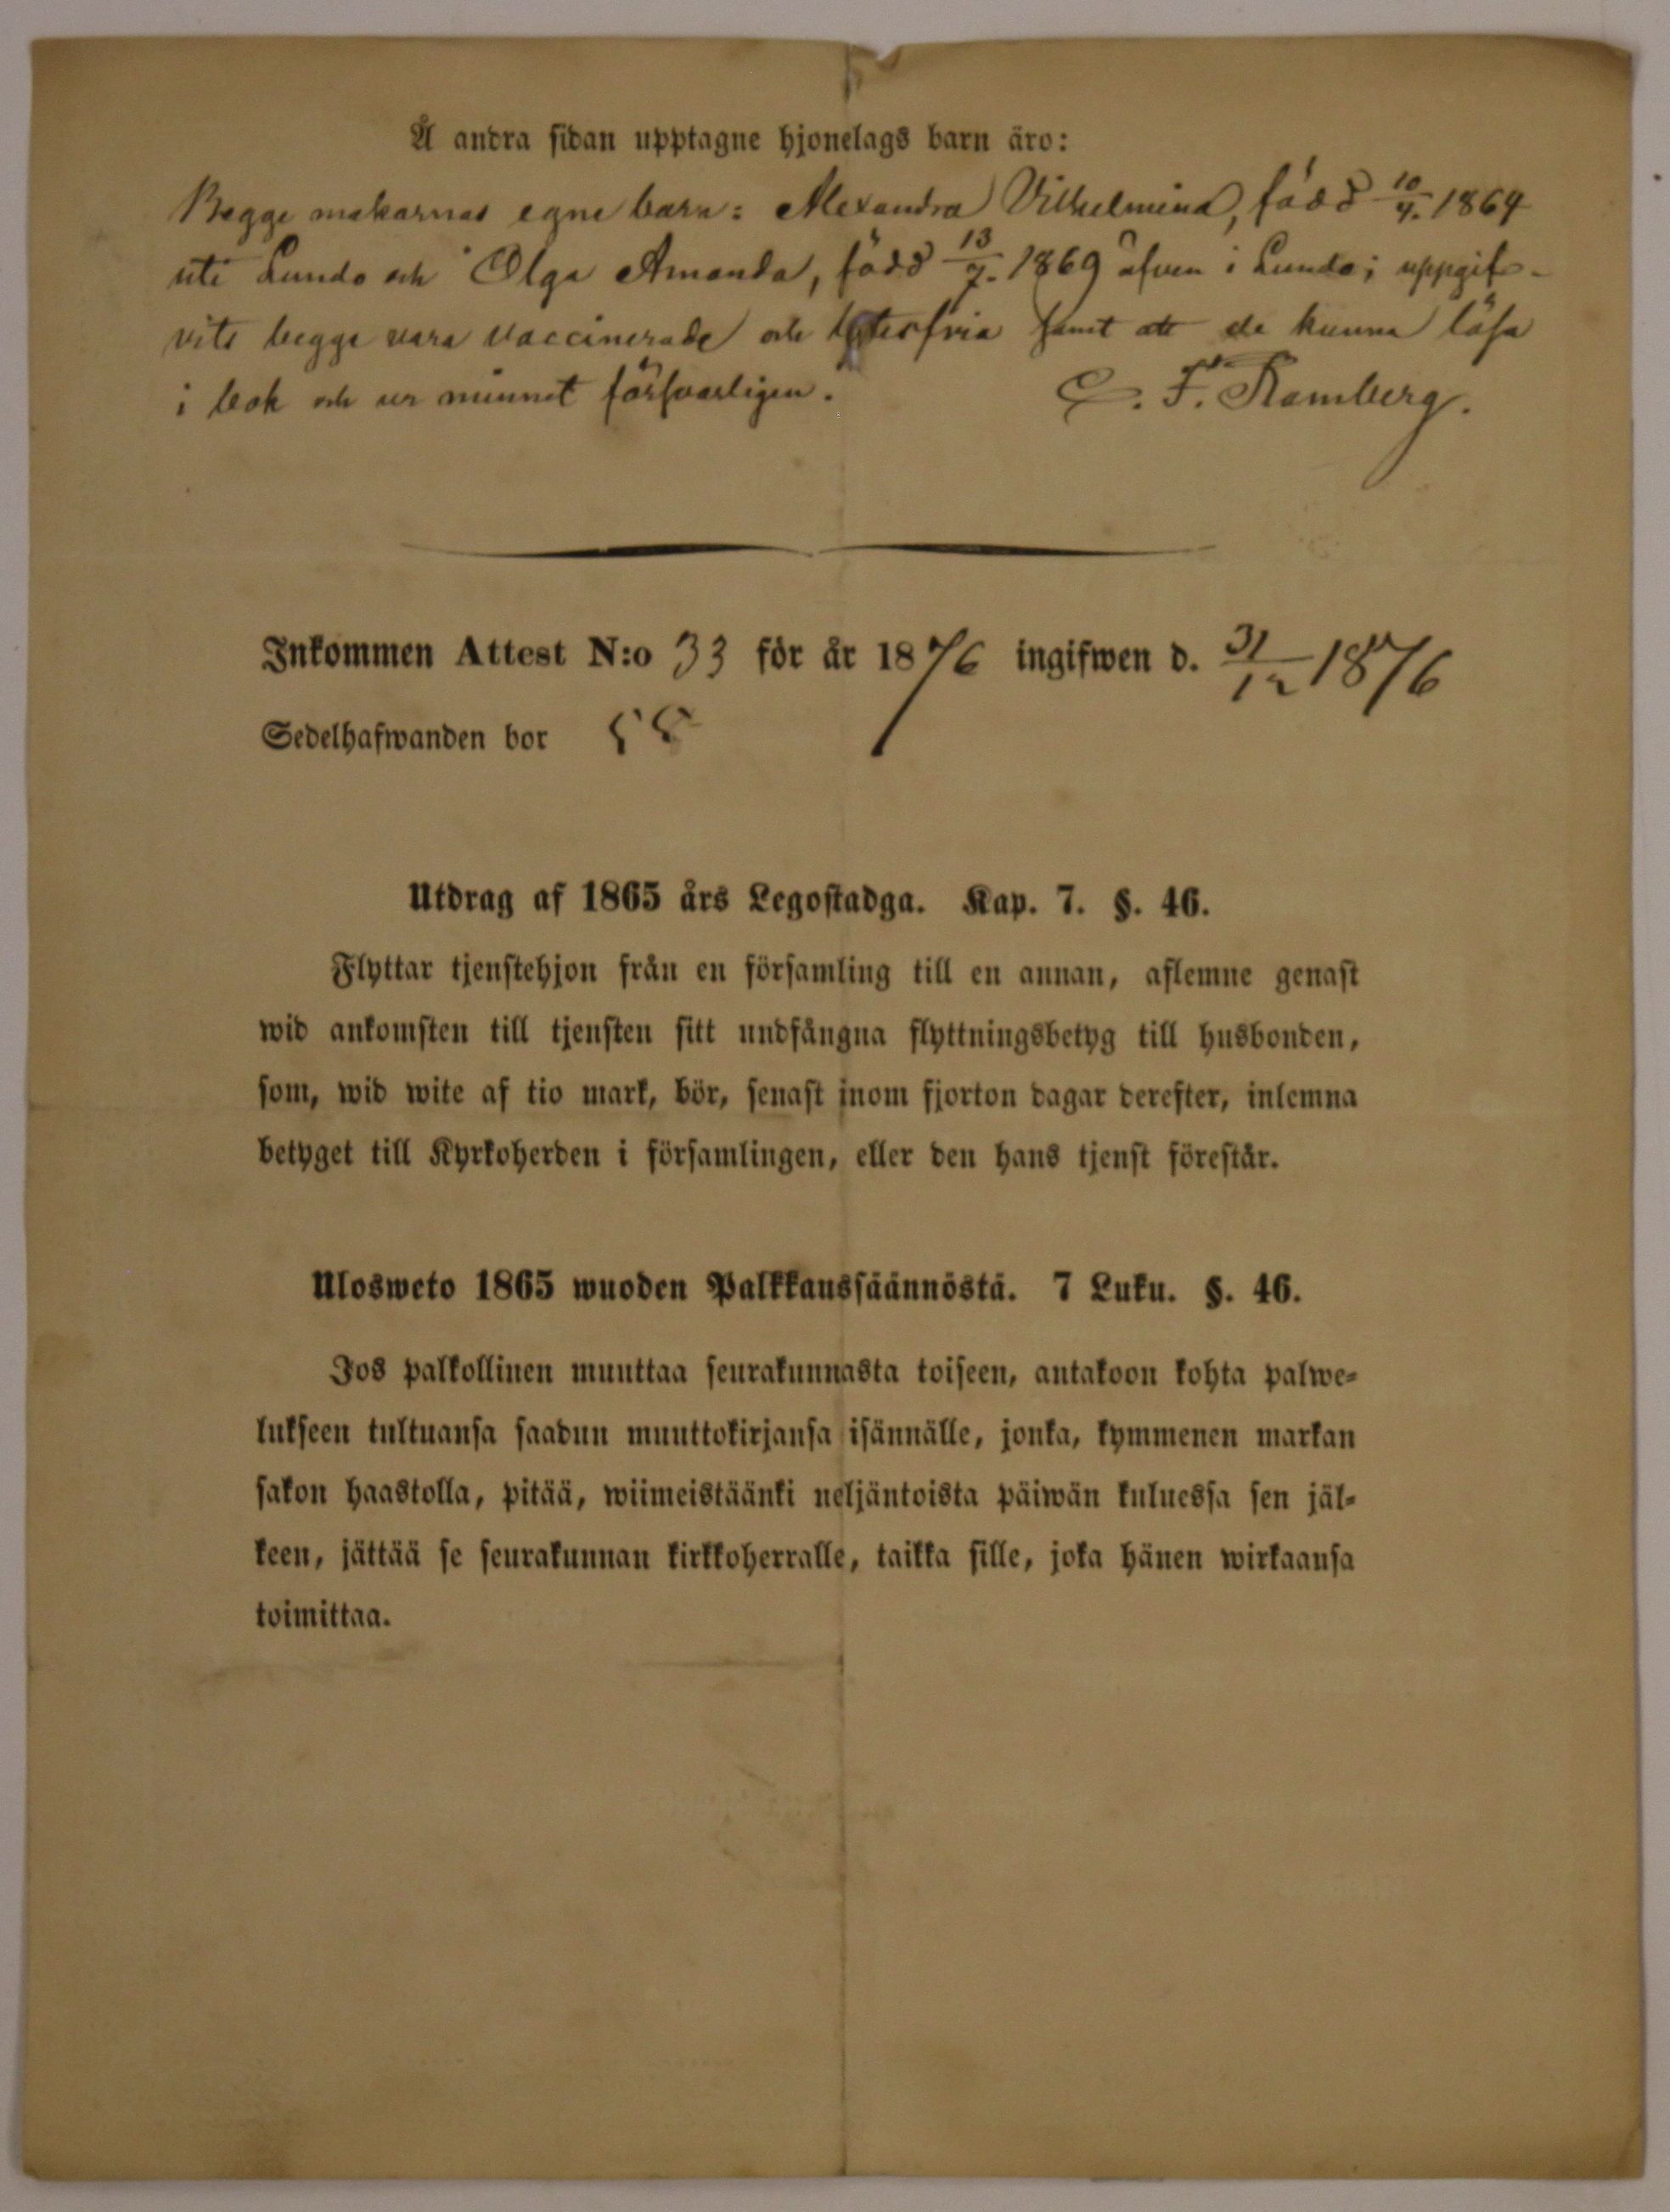 Å andra sidan upptagne hjonelags barn äro:
Begge makarnas egne barn: Alexandra Vilhelmina, född 10/4. 1864
uti Lundo och Olga Amanda, född 13/7. 1869 äfven i Lundo; uppgif-
vits begge vara vaccinerade och lytesfria samt att de kunna läsa
i bok och ur minnet försvarligen. C. F. Ramberg.
Inkommen Attest N:o 33 för år 1876 ingifwen d. 31/12 1876
Sedelhafwanden bor
Utdrag af 1865 års Legostadga. Kap. 7. §. 46.
Flyttar tjenstehjon från en församling till en annan, aflemne genast
wid ankomsten till tjensten sitt undfångna flyttningsbetyg till husbonden,
som, wid wite af tio mark, bör, senast inom fjorton dagar derefter, inlemna
betyget till Kyrkoherden i församlingen, eller den hans tjenst förestår.
Ulosweto 1865 wuoden Palkkaussäännöstä. 7 Luku. §. 46.
Jos palkollinen muuttaa seurakunnasta toiseen, antakoon kohta palwe-
lukseen tultuansa saadun muuttokirjansa isännälle, jonka, kymmenen markan
sakon haastolla, pitää, wiimeistäänki neljäntoista päiwän kuluessa sen jäl-
keen, jättää se seurakunnan kirkkoherralle, taikka sille, joka hänen wirkaansa
toimittaa.